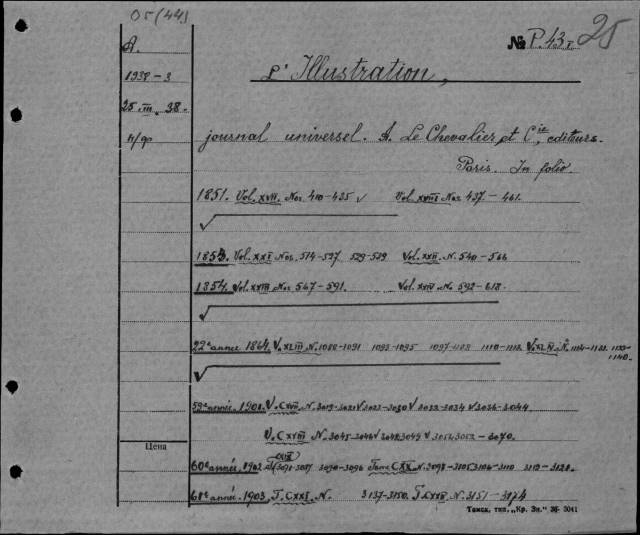 05(44)
25
№ P.43
А.
1938-3
L'Illustration,
25 III. 38.
н/ф
journal universel. A. Le Chevalier et Cie, editeurs.
Paris. In folio.
1851. Vol. XVII. Nos. 410-435 √ Vol. XVIII Nos. 437.-461.
1853. Vol. XXI Nos. 514-527 529-539 Vol. XXII N. 540-566
1854. Vol. XXIII Nos 567-591. Vol. XXIV No 592-618.
22e année 1864. V. XLIII N. 1088-1091 1093-1095
59e année, 1901. V. CXVII N. 3019-3021 √ 3023-3030 √ 3032-3034 √ 3036-3044
V. CXVIII N. 3045-3046 √ 3048,3049 √ 3051,3052-3070.
Цена
CXIX
60e année, 1902 3090-3096 Tome CXX N. 3098-3105
61e année, 1903, T. CXXI, N. 3137-3150. T. CXXII, N. 3151-3174
Томск, тип. „Кр. Зн." 36- 3041